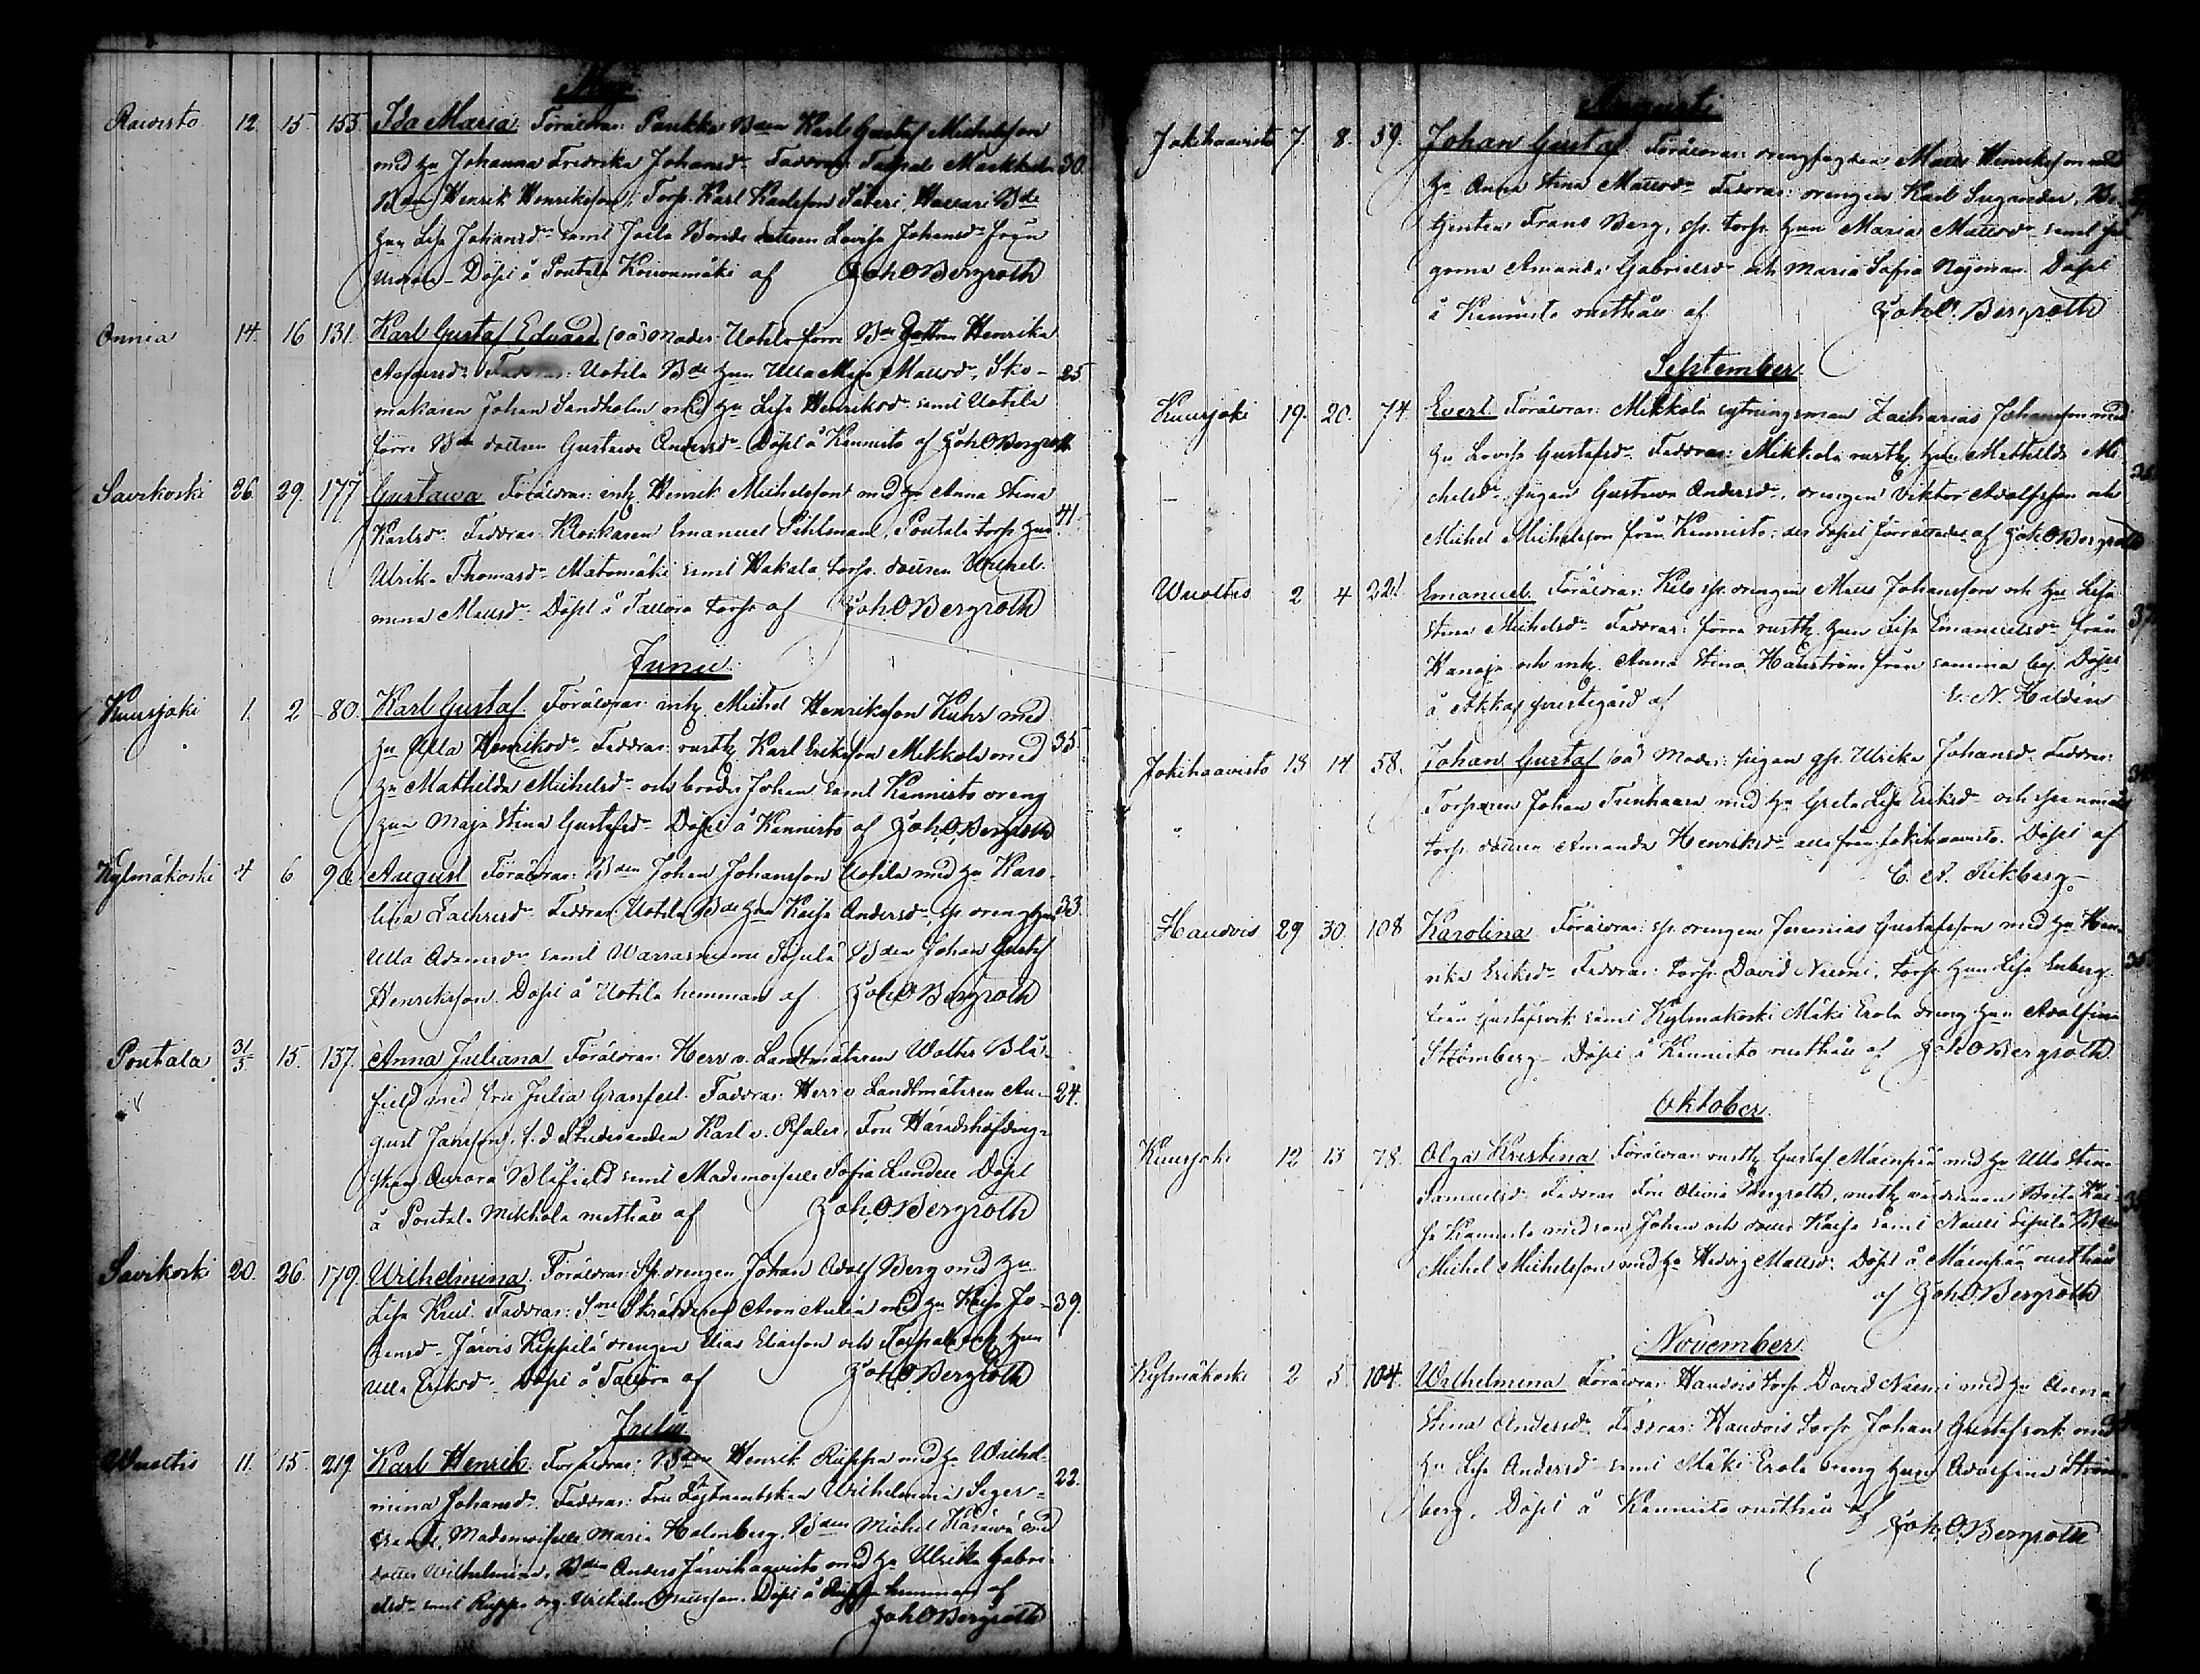 Maji
Raivisto 12. 15. 153. Ida Maria. Föräldrar: Paukka Bden Karl Gustaf Michelsson
med hu Johanna Fredrika Johansdr Faddrar: Taipale Markkula 30.
Bden Henrik Henriksson, Torp. Karl Karlsson Säteri, Havari Bde
hun Lisa Johansdr samt Jaila Bonde dottren Lovisa Johansdr från
Urdiala. Döpt å Pontala Koivunmäki af Joh O Bergroth
Onnia 14. 16 131. Karl Gustaf Eduard (oä) Moder: Uotila förre Bde dottren Henrika
Faddrar: Uotila Bde hun Ulla Maja Mattsdr, Sko- 25
makaren Johan Sandholm med hu Lisa Henriksdr samt Uotila
förre Bde dottren Gustava Andersdr. Döpt å Kannisto af Joh O Bergroth
Savikoski 26. 29. 177 Gustava Föräldrar: inh. Henrik Michelsson med hu Anna Stina
Karlsdr. Faddrar: Klockaren Emanuel Pihlman, Pontala torp. hun 41.
Ulrika Thomasdr Matomäki samt Hakala torp. dottren Wilhel-
mina Mattsdr. Döpt å Tallora torp af Joh O Bergroth
Junii
Kuurjoki 1. 2 80. Karl Gustaf. Föräldrar: inh. Michel Henriksson Kuhr med
hu Ulla Henriksdr. Faddrar: rusth. Karl Eriksson Mikkola med 35.
hu Mathilda Michelsdr och broder Johan samt Kannisto dreng
hun Maja Stina Gustafsdr. Döpt å Kannisto af Joh. O. Bergroth
Kylmäkoski 4 6 96. August Föräldrar: Bden Johan Johansson Uotila med hu Karo-
lina Zachrisdr. Faddrar: Uotila Bde hun Kaisa Andersdr, sp. dreng hun 33.
Ulla Adamsdr samt Warrasniemi Sipilä Bden Johan Gustaf
Henriksson. Döpt å Uotila hemman af Joh O Bergroth
Pontala 31/5 15. 137. Anna Juliana Föräldrar: Herr v. Landtmätaren Walter Blå-
field med fru Julia Granfelt. Faddrar: Herr v. Landtmätaren Au- 24.
gust Jansson, f.d Studeranden Karl v. Pfaler, Fru Häradshöfding-
skan Aurora Blåfield samt Mademoiselle Sofia Lundell Döpt
å Pontala Mikkola rusthåll af Joh. O. Bergroth
Savikoski 20. 26. 179. Wilhelmina. Föräldrar: Sp. drengen Johan Adolf Berg med hu
Lisa Krull. Faddrar: Sne Skräddaren Aron Aulin med hu Kaisa Jo- 39.
hansd. Järvis Keppilä drengen Elias Eliasson och Taipale inh. hun
Ulla Eriksdr. Döpt å Tallora af Joh O Bergroth
Julii
Wuoltis 11. 15. 219. Karl Henrik. Föräldrar: Bden Henrik Riippa med hu Wilhel-
mina Johansdr. Faddrar: Fru Löjtnantskan Wilhelmina Seger- 22.
stråle, Mademoiselle Maria Holmberg, Bden Michel med
dotter Wilhelmina, Bden Anders Järvihaavisto med hu Ulrika Gabri-
elsdr samt Riippa drg. Wilhelm Mattsson. Döpt å Riippa hemman af
Joh O Bergroth
Augusti
Jokihaavisto 7. 8. 59. Johan Gustaf Föräldrar: drengfogden Matts Henriksson med
hu Anna Stina Mattsdr Faddrar: drengen Karl Sugander, Be-
tjenten Frans Berg, sp. torp. hun Maria Mattsdr samt pi-
gorna Amanda Gabrielsdr och Maria Sofia Nyman. Döpt
å Kannisto rusthåll af Joh O. Bergroth
September
Kuurjoki 19. 20. 74. Evert Föräldrar: Mikkola sytningsman Zacharias Johansson med
hu Lovisa Gustafsdr. Faddrar: Mikkola rusth. hun Mathilda Mi-
chelsdr pigan Gustava Andersdr, drengen Viktor Adolfsson och
Michel Michelsson från Kannisto; der döpet förrättades af Joh O Bergroth
Wuoltis 2 4 221 Emanuel. Föräldrar: Kelo sp. drengen Matts Johansson och hu Lisa
Stina Michelsdr. Faddrar: förra rusth. hun Lisa Emanuelsdr från 37.
Hanaja och inh. Anna Stina Hallström från samma by. Döpt
å Akkas prestegård af E. N. Haldin
Jokihaavisto 13 14 58. Johan Gustaf (oä) Moder: pigan gp. Ulrika Johansdr. Faddrar:
Torparen Johan Tienhaara med hu Greta Lisa Eriksdr och
torp. dottren Amanda Henriksdr alla från Jokihaavisto. Döpt af
C. A. Rikberg.
Haudois 29 30. 108 Karolina. Föräldrar: sp. drengen Jeremias Gustafsson med hu Hen-
rika Eriksdr. Faddrar: torp. David Niemi, torp. hun Lisa Enberg
från Gustafsvik samt Kylmäkoski Mäki Erola dreng hun Adolfina
Strömberg. Döpt å Kannisto rusthåll af Joh O Bergroth
Oktober
Kuurjoki 12 13 78. Olga Kristina Föräldrar: rusth. Gustaf Mäenpää med hu Ulla Stina
Samuelsdr. Faddrar: Fru Olivia Bergroth, rusth. värdinnan Brita Kai-
sa Kannisto med son Johan och dotter Kaisa samt Sipilä Bden
Michel Michelsson med hu Hedvig Mattsdr. Döpt å Mäenpää rusthåll
af Joh O. Bergroth
November
Kylmäkoski 2 5. 104. Wilhelmina. Föräldrar: Haudois torp. David Niemi med hu Anna
Stina Andersdr. Faddrar: Haudois torp. Johan Gustafsvik med
hu Lisa Andersdr samt Mäki Erola dreng hun Adolfina Ström-
berg. Döpt å Kannisto rusthåll af
Joh. O. Bergroth